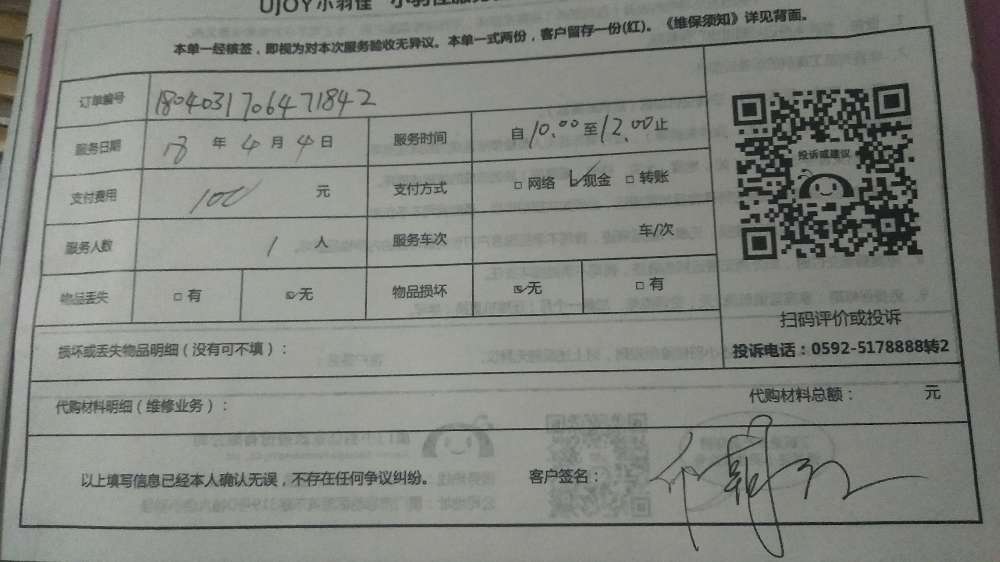 UJOY小羽佳
本单一经核签，即视为对本次服务验收无异议。本单一式两份，客户留存一份(红)。《维保须知》详见背面。
订单编号 180403170647 1842
服务日期 18 年 4 月 4 日 服务时间 自 10.00 至 12.00 止
支付费用 100 元 支付方式 □ 网络 ☑ 现金 □ 转账
服务人数 1 人 服务车次 车/次
物品丢失 □ 有 ☑ 无 物品损坏 ☑ 无 □ 有
投诉或建议
扫码评价或投诉
投诉电话：0592-5178888转2
损坏或丢失物品明细（没有可不填）：
代购材料明细（维修业务）： 代购材料总额： 元
以上填写信息已经本人确认无误，不存在任何争议纠纷。 客户签名：